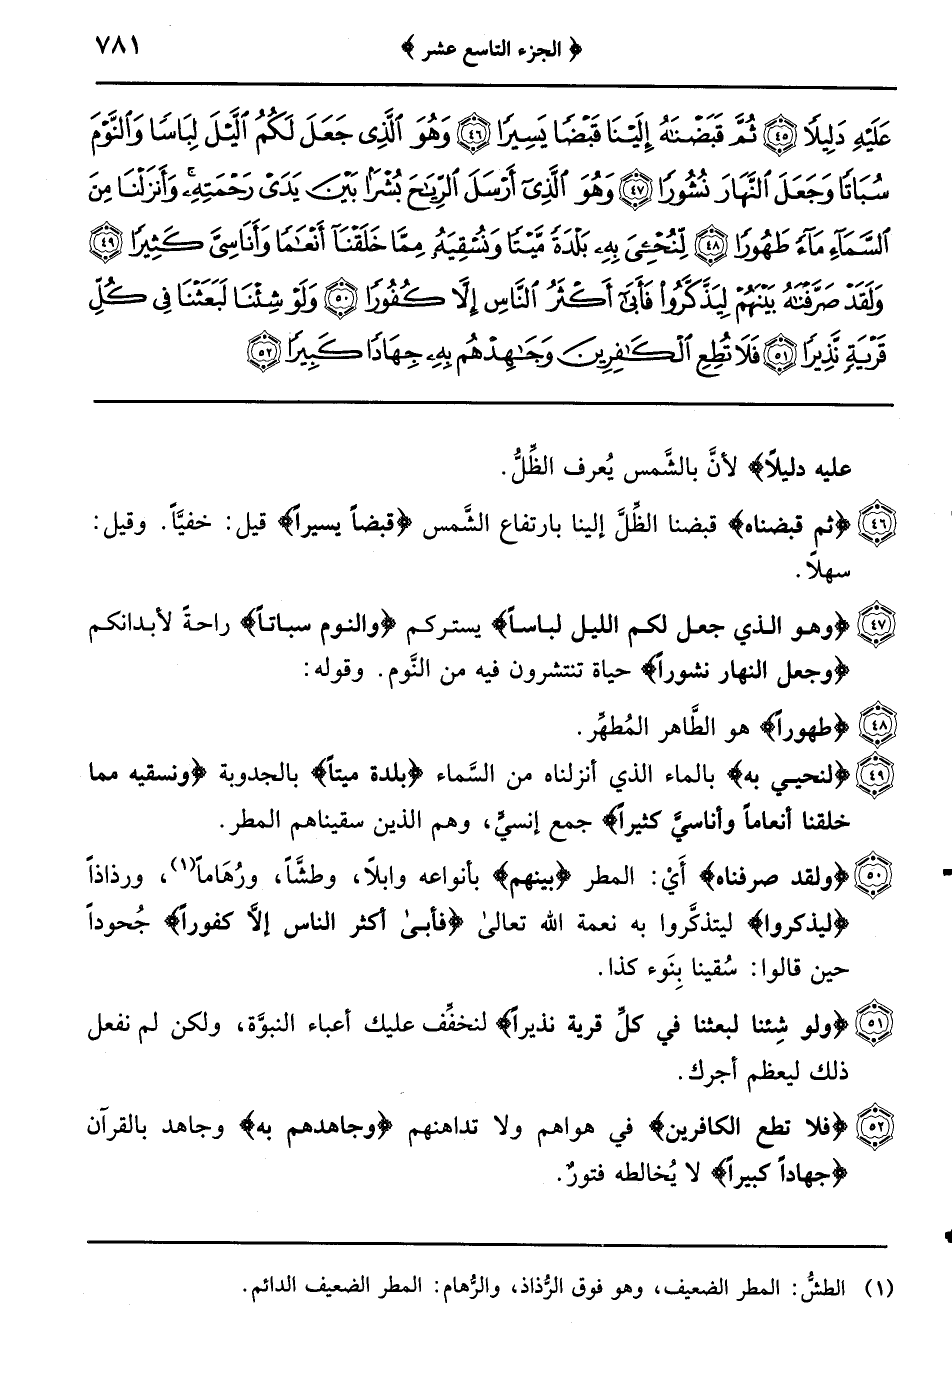 ﴿ الجزء التاسع عشر ﴾ ٧٨١
عَلَيْهِ دَلِيلًا ٤٥ ثُمَّ قَبَضْنَٰهُ إِلَيْنَا قَبْضًا يَسِيرًا ٤٦ وَهُوَ ٱلَّذِى جَعَلَ لَكُمُ ٱلَّيْلَ لِبَاسًا وَٱلنَّوْمَ
سُبَاتًا وَجَعَلَ ٱلنَّهَارَ نُشُورًا ٤٧ وَهُوَ ٱلَّذِىٓ أَرْسَلَ ٱلرِّيَٰحَ بُشْرًۢا بَيْنَ يَدَىْ رَحْمَتِهِۦ ۚ وَأَنزَلْنَا مِنَ
ٱلسَّمَآءِ مَآءً طَهُورًا ٤٨ لِّنُحْـِۧىَ بِهِۦ بَلْدَةً مَّيْتًا وَنُسْقِيَهُۥ مِمَّا خَلَقْنَآ أَنْعَٰمًا وَأَنَاسِىَّ كَثِيرًا ٤٩
وَلَقَدْ صَرَّفْنَٰهُ بَيْنَهُمْ لِيَذَّكَّرُوا۟ فَأَبَىٰٓ أَكْثَرُ ٱلنَّاسِ إِلَّا كُفُورًا ٥٠ وَلَوْ شِئْنَا لَبَعَثْنَا فِى كُلِّ
قَرْيَةٍ نَّذِيرًا ٥١ فَلَا تُطِعِ ٱلْكَٰفِرِينَ وَجَٰهِدْهُم بِهِۦ جِهَادًا كَبِيرًا ٥٢
عليه دليلاً﴾ لأنَّ بالشَّمس يُعرف الظِّلُّ.
٤٦ ﴿ثم قبضناه﴾ قبضنا الظِّلَّ إلينا بارتفاع الشَّمس ﴿قبضاً يسيراً﴾ قيل: خفيَّاً. وقيل:
سهلاً.
٤٧ ﴿وهو الذي جعل لكم الليل لباساً﴾ يستركم ﴿والنوم سباتاً﴾ راحةً لأبدانكم
﴿وجعل النهار نشوراً﴾ حياة تنتشرون فيه من النَّوم. وقوله:
٤٨ ﴿طهوراً﴾ هو الطَّاهر المُطهِّر.
٤٩ ﴿لنحيي به﴾ بالماء الذي أنزلناه من السَّماء ﴿بلدة ميتاً﴾ بالجدوبة ﴿ونسقيه مما
خلقنا أنعاماً وأناسيَّ كثيراً﴾ جمع إنسيٍّ، وهم الذين سقيناهم المطر.
٥٠ ﴿ولقد صرفناه﴾ أَيْ: المطر ﴿بينهم﴾ بأنواعه وابلاً، وطشَّاً، ورُهَاماً(١)، ورذاذاً
﴿ليذكروا﴾ ليتذكَّروا به نعمة الله تعالىٰ ﴿فأبىٰ أكثر الناس إلاَّ كفوراً﴾ جُحوداً
حين قالوا: سُقينا بِنَوء كذا.
٥١ ﴿ولو شِئنا لبعثنا في كلِّ قرية نذيراً﴾ لنخفِّف عليك أعباء النبوَّة، ولكن لم نفعل
ذلك ليعظم أجرك.
٥٢ ﴿فلا تطع الكافرين﴾ في هواهم ولا تداهنهم ﴿وجاهدهم به﴾ وجاهد بالقرآن
﴿جهاداً كبيراً﴾ لا يُخالطه فتورٌ.
(١) الطشُّ: المطر الضعيف، وهو فوق الرُّذاذ، والرُّهام: المطر الضعيف الدائم.